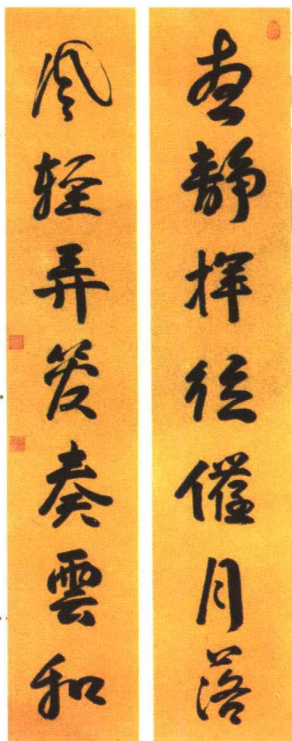 夜靜揮絃催月落
風輕弄管奏雲和